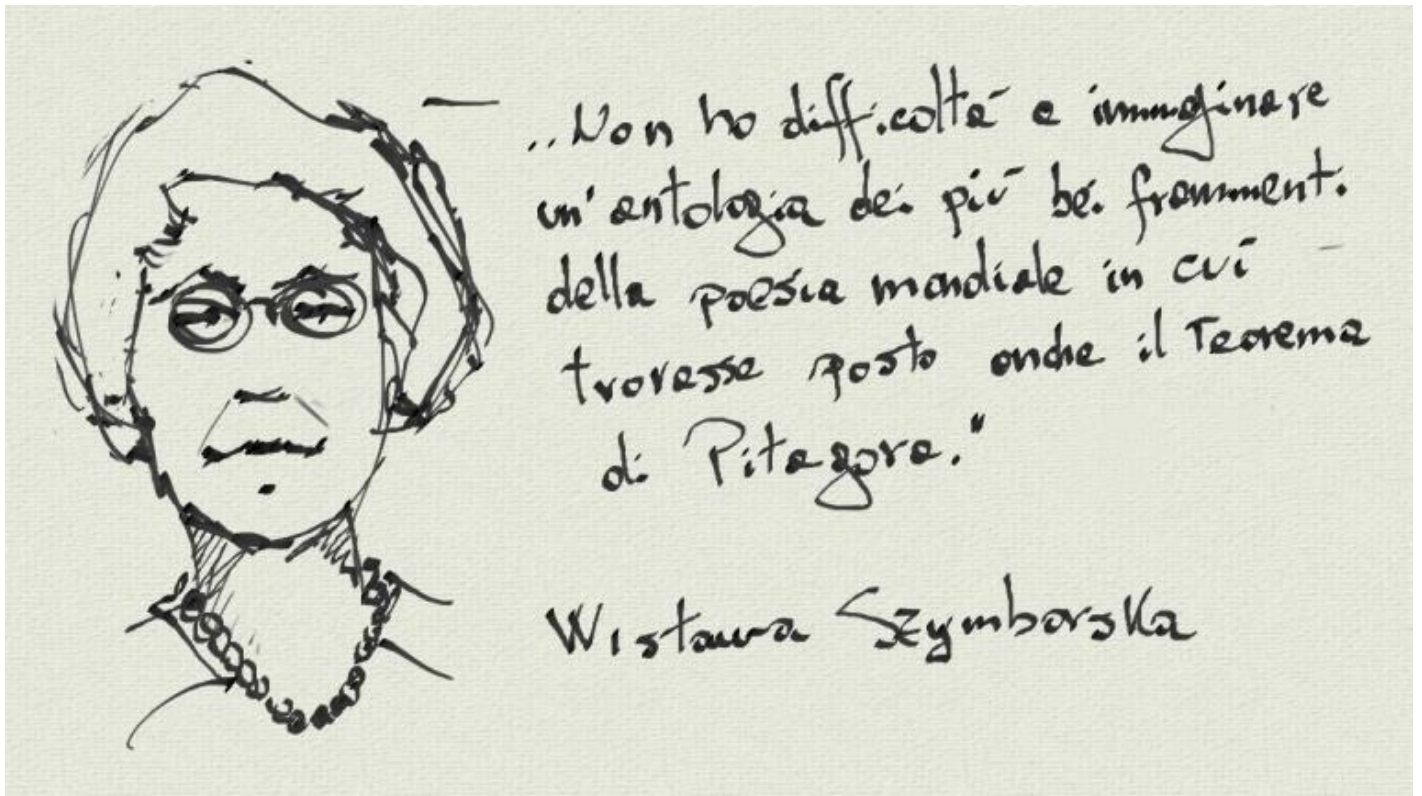 ..Non ho difficoltà a immaginare
un'antologia dei più bei frammenti
della poesia mondiale in cui
trovasse posto anche il Teorema
di Pitagora."
Wistawa Szymborska